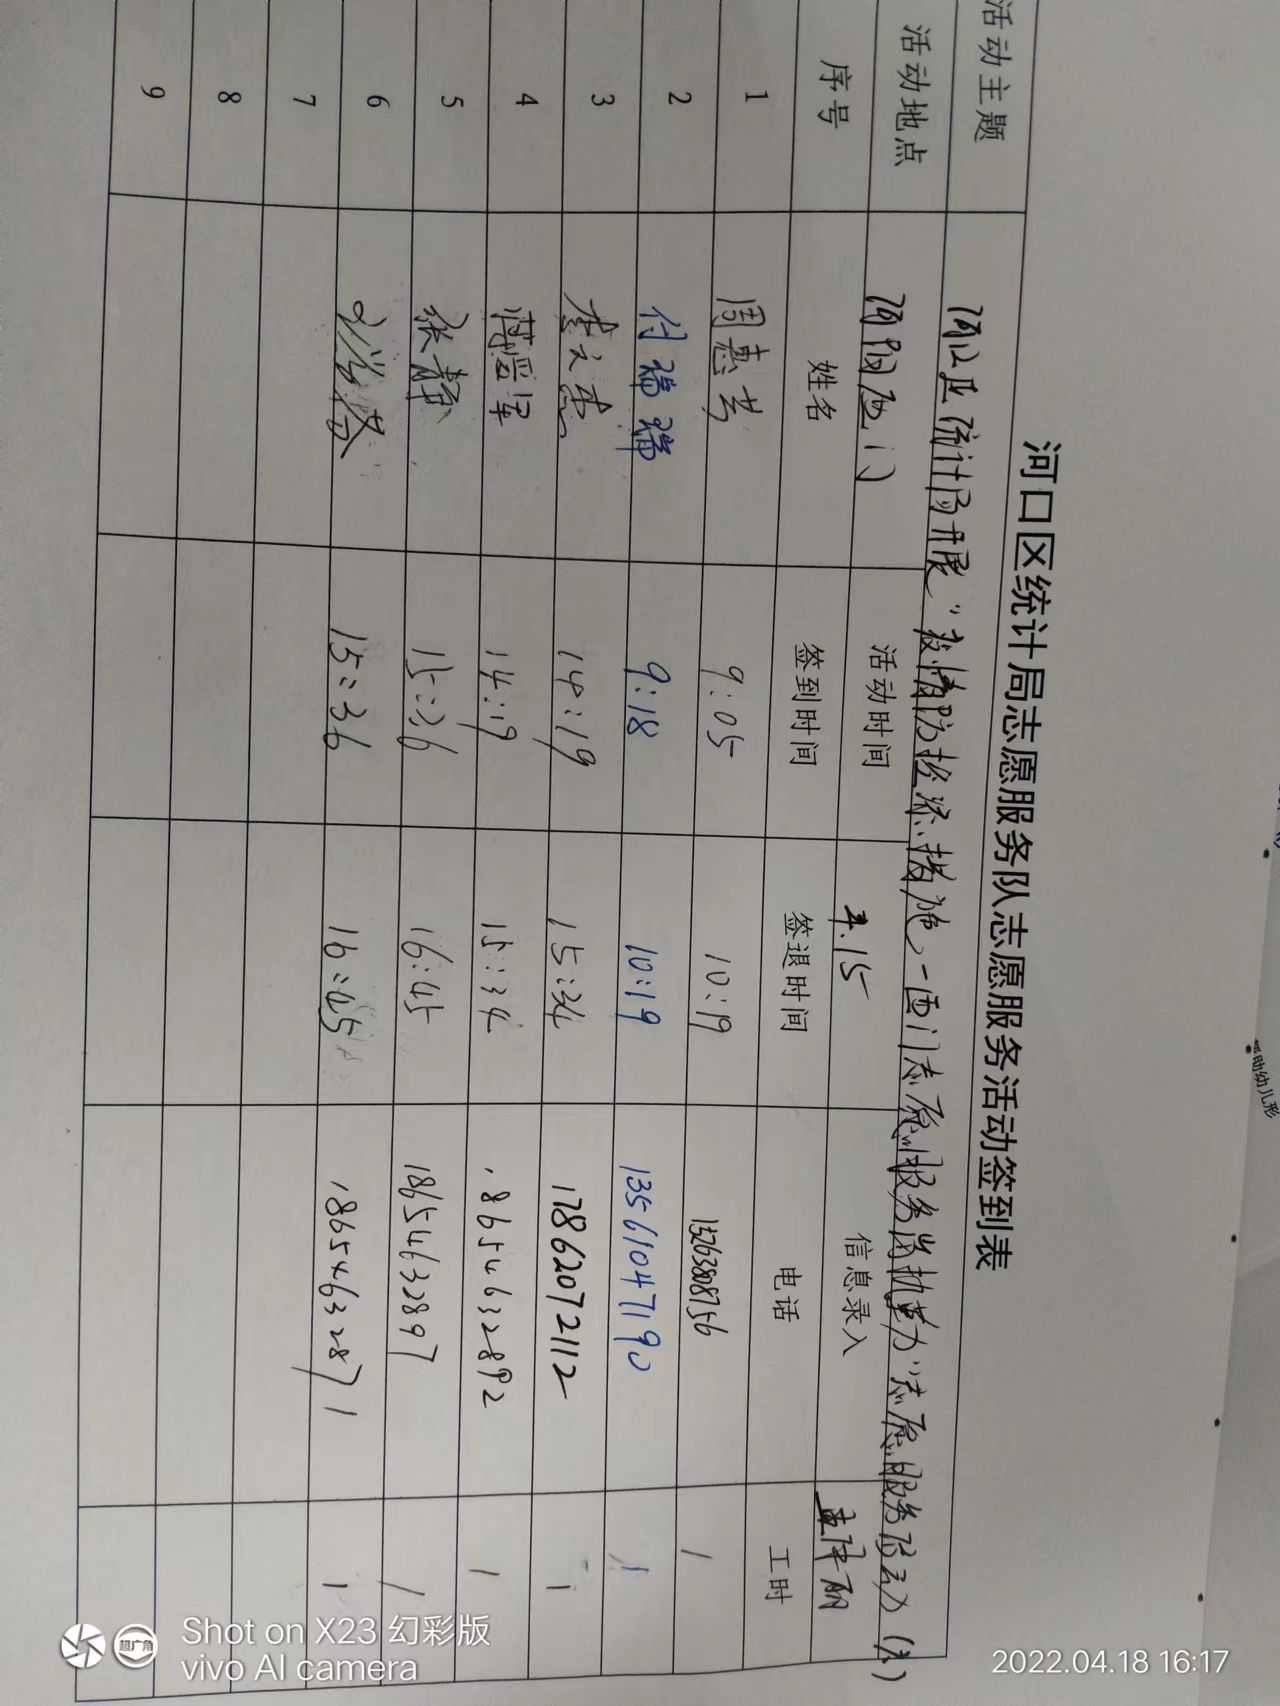 河口区统计局志愿服务队志愿服务活动签到表
活动主题 河口区统计局开展"疫情防控添措施,西门志愿服务岗执勤"志愿服务活动
活动地点 活动时间 4.15 信息录入
序号 姓名 签到时间 签退时间 电话 工时
1 周惠芸 9:05 10:19 15263808756 1
2 付瑞瑞 9:18 10:19 13561047190 1
3 李文杰 14:19 15:34 17862072112 1
4 14:19 15:34 18654632892 1
5 张静 15:36 16:45 18654632897 1
6 15:36 16:45 18654632871 1
7
8
9
帮助幼儿形
超广角
Shot on X23 幻彩版
vivo AI camera
2022.04.18 16:17